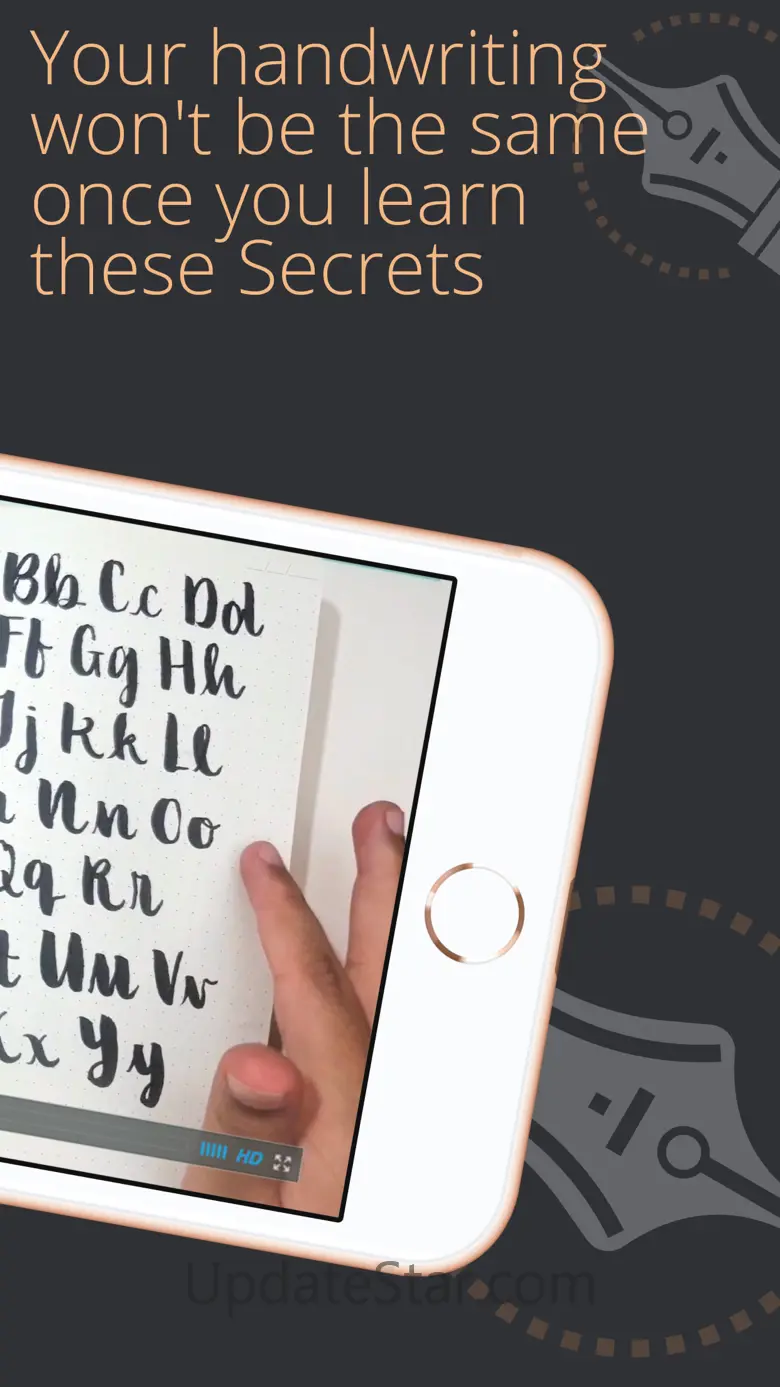 Your handwriting
won't be the same
once you learn
these Secrets
Bb Cc Dd
Ff Gg Hh
Jj Kk Ll
Nn Oo
Qq Rr
t Uu Vv
x Yy
HD
UpdateStar.com